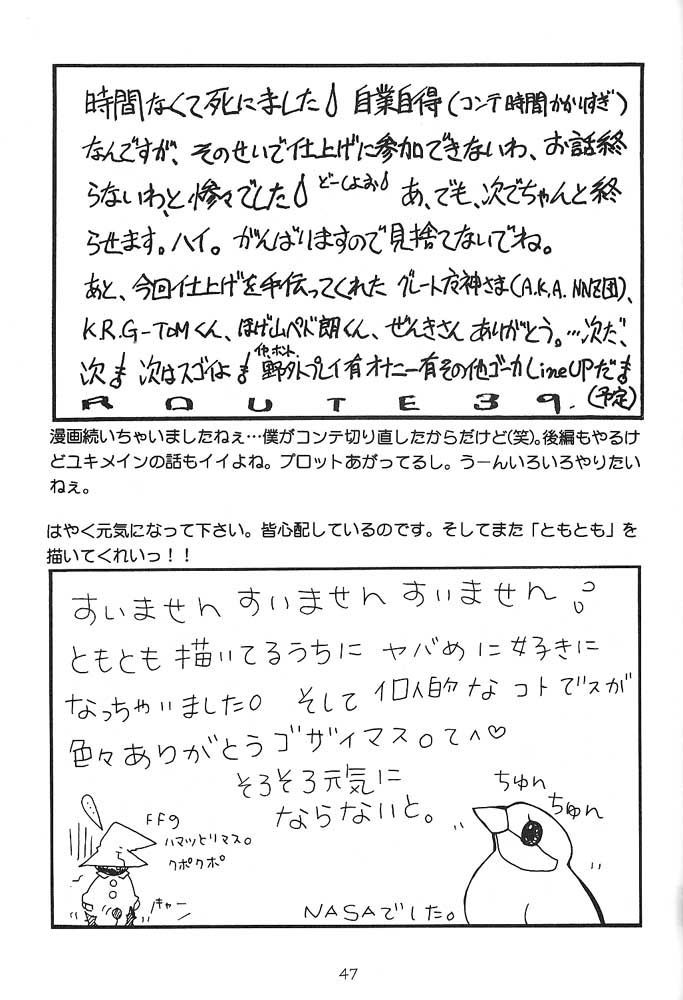 時間なくて死にました 自業自得(コンテ時間かかりすぎ)
なんですが、そのせいで仕上げに参加できないわ、お話終
らないわ、と惨々でした どーしよお あ、でも、次でちゃんと終
らせます。ハイ。がんばりますので見捨てないでね。
あと、今回仕上げを手伝ってくれた グレート 神さま(A.K.A. NNZ団)、
K.R.G-TOMくん、ほげ山ペド朗くん、ぜんきさん ありがとう。…次だ、
次 次はスゴイよ 他、ホント。 野外プレイ有オナニー有その他ゴーカLineUPだ
(予定)
ROUTE39.
漫画続いちゃいましたねぇ…僕がコンテ切り直したからだけど(笑)。後編もやるけ
どユキメインの話もイイよね。プロットあがってるし。うーんいろいろやりたい
ねぇ。
はやく元気になって下さい。皆心配しているのです。そしてまた「ともとも」を
描いてくれいっ!!
すいません すいません すいません
ともとも描いてるうちに ヤバめに好きに
なっちゃいました。 そして 個人的な コトですが
色々ありがとうゴザイマス。てへ♡
そろそろ元気に
ならないと。
FFの
ハマッとリマス。
クポクポ
キャー
ちゅん
ちゅん
NASAでした。
47